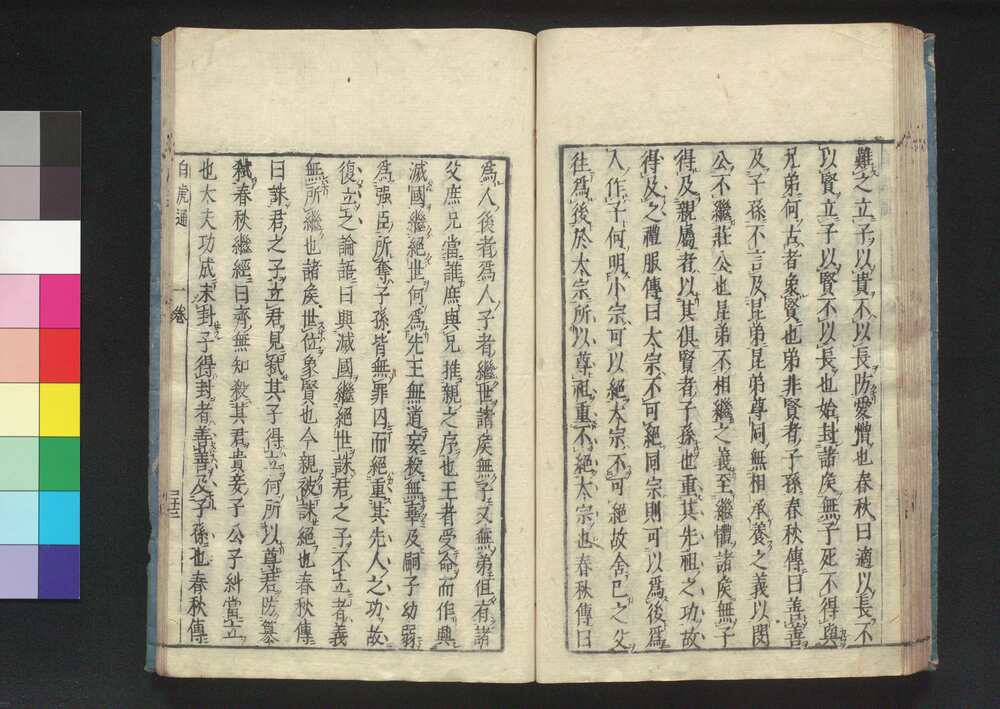 雖之立子以貴不以長防愛憎也春秋曰適以長不
以賢立子以賢不以長也始封諸侯無子死不得與
兄弟何古者象賢也弟非賢者子孫春秋傳曰善善
及子孫不言及昆弟昆弟尊同無相承養之義以閔
公不繼莊公也昆弟不相繼之義至繼體諸侯無子
得及親屬者以其俱賢者子孫也重其先祖之功故
得及之禮服傳曰大宗不可絕同宗則可以爲後爲
人作子何明小宗可以絕大宗不可絕故舍已之父
往爲後於太宗所以尊祖重不絕太宗也春秋傳曰
爲人後者爲人子者繼世諸侯無子又無弟但有諸
父庶兄當誰庶與兄推親之序也王者受命而作興
滅國繼絕世何爲先王無道妄殺無辜及嗣子幼弱
爲强臣所奪子孫皆無罪囚而絕重其先人之功故
復立之論語曰興滅國繼絕世誅君之子不立者義
無所繼也諸侯世位象賢也今親被誅絕也春秋傳
曰誅君之子立君見弑其子得立何所以尊君防篡
弑春秋繼經曰齊無知殺其君貴妾子公子糾當立
也大夫功成未封子得封者善善及子孫也春秋傳
白虎通 一卷 三十三